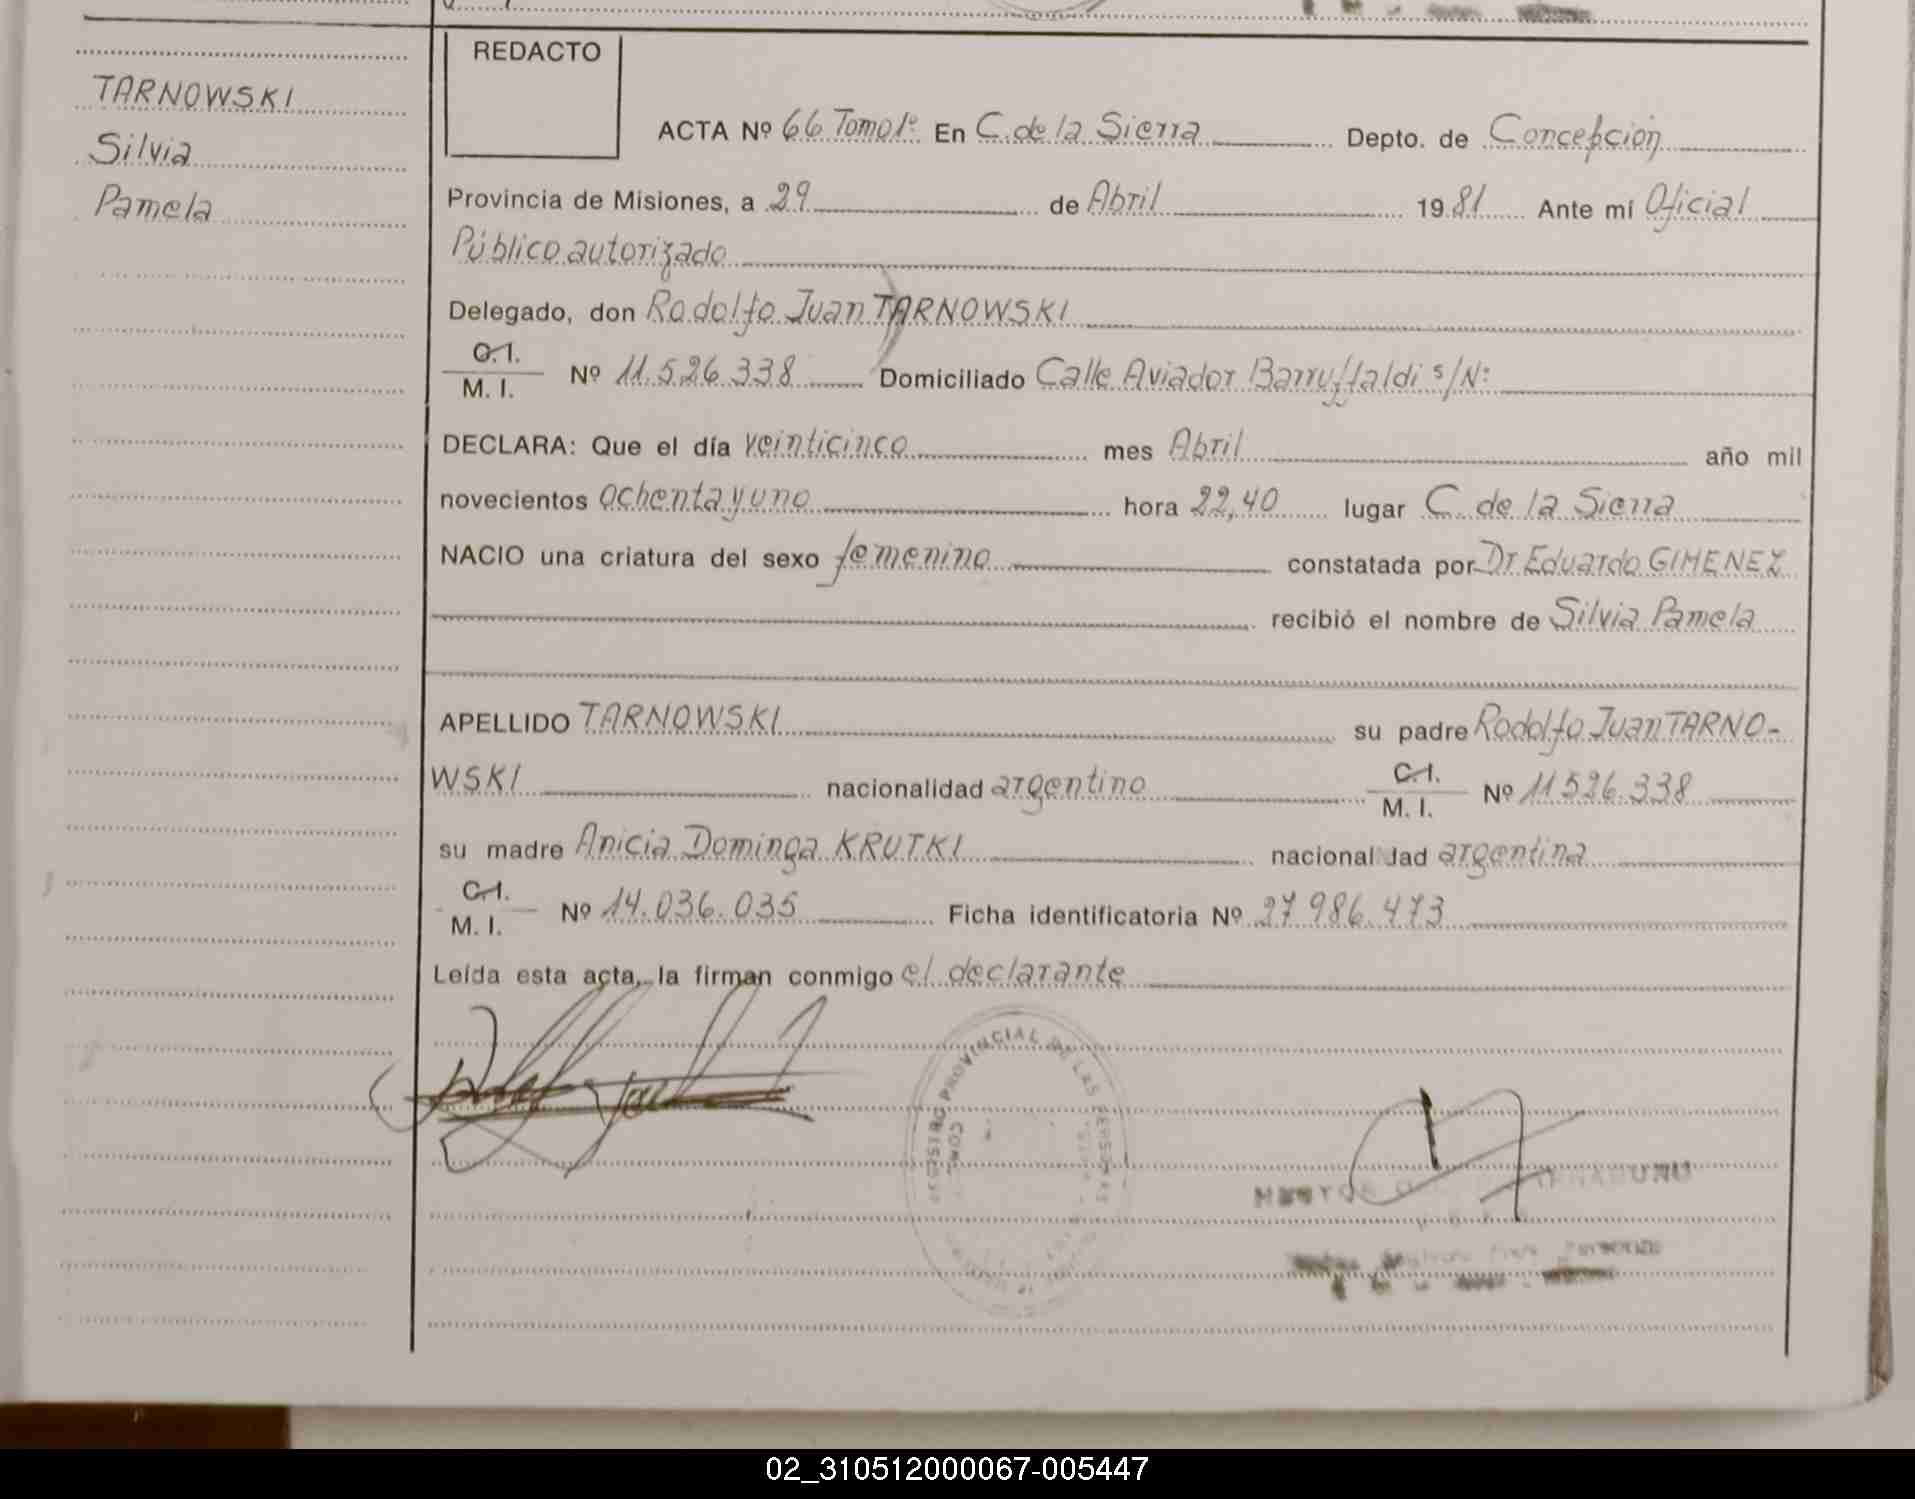 TARNOWSKI
Silvia
Pamela
REDACTO
ACTA Nº 66 Tomo 1º En C. de la Sierra Depto. de Concepción
Provincia de Misiones, a 29 de Abril 1981 Ante mí Oficial
Público autorizado
Delegado, don Rodolfo Juan TARNOWSKI
C.I.
M. I. Nº 11.526.338 Domiciliado Calle Aviador Barruffaldi s/Nº
DECLARA: Que el día veinticinco mes Abril año mil
novecientos ochenta y uno hora 22,40 lugar C. de la Sierra
NACIO una criatura del sexo femenino constatada por Dr Eduardo GIMENEZ
recibió el nombre de Silvia Pamela
APELLIDO TARNOWSKI su padre Rodolfo Juan TARNO-
WSKI nacionalidad argentino C.I.
M. I. Nº 11.526.338
su madre Anicia Dominga KRUTKI nacionalidad argentina
C.I.
M. I. Nº 14.036.035 Ficha identificatoria Nº 27.986.473
Leída esta acta, la firman conmigo el declarante
REGISTRO PROVINCIAL DE LAS PERSONAS
02_310512000067-005447